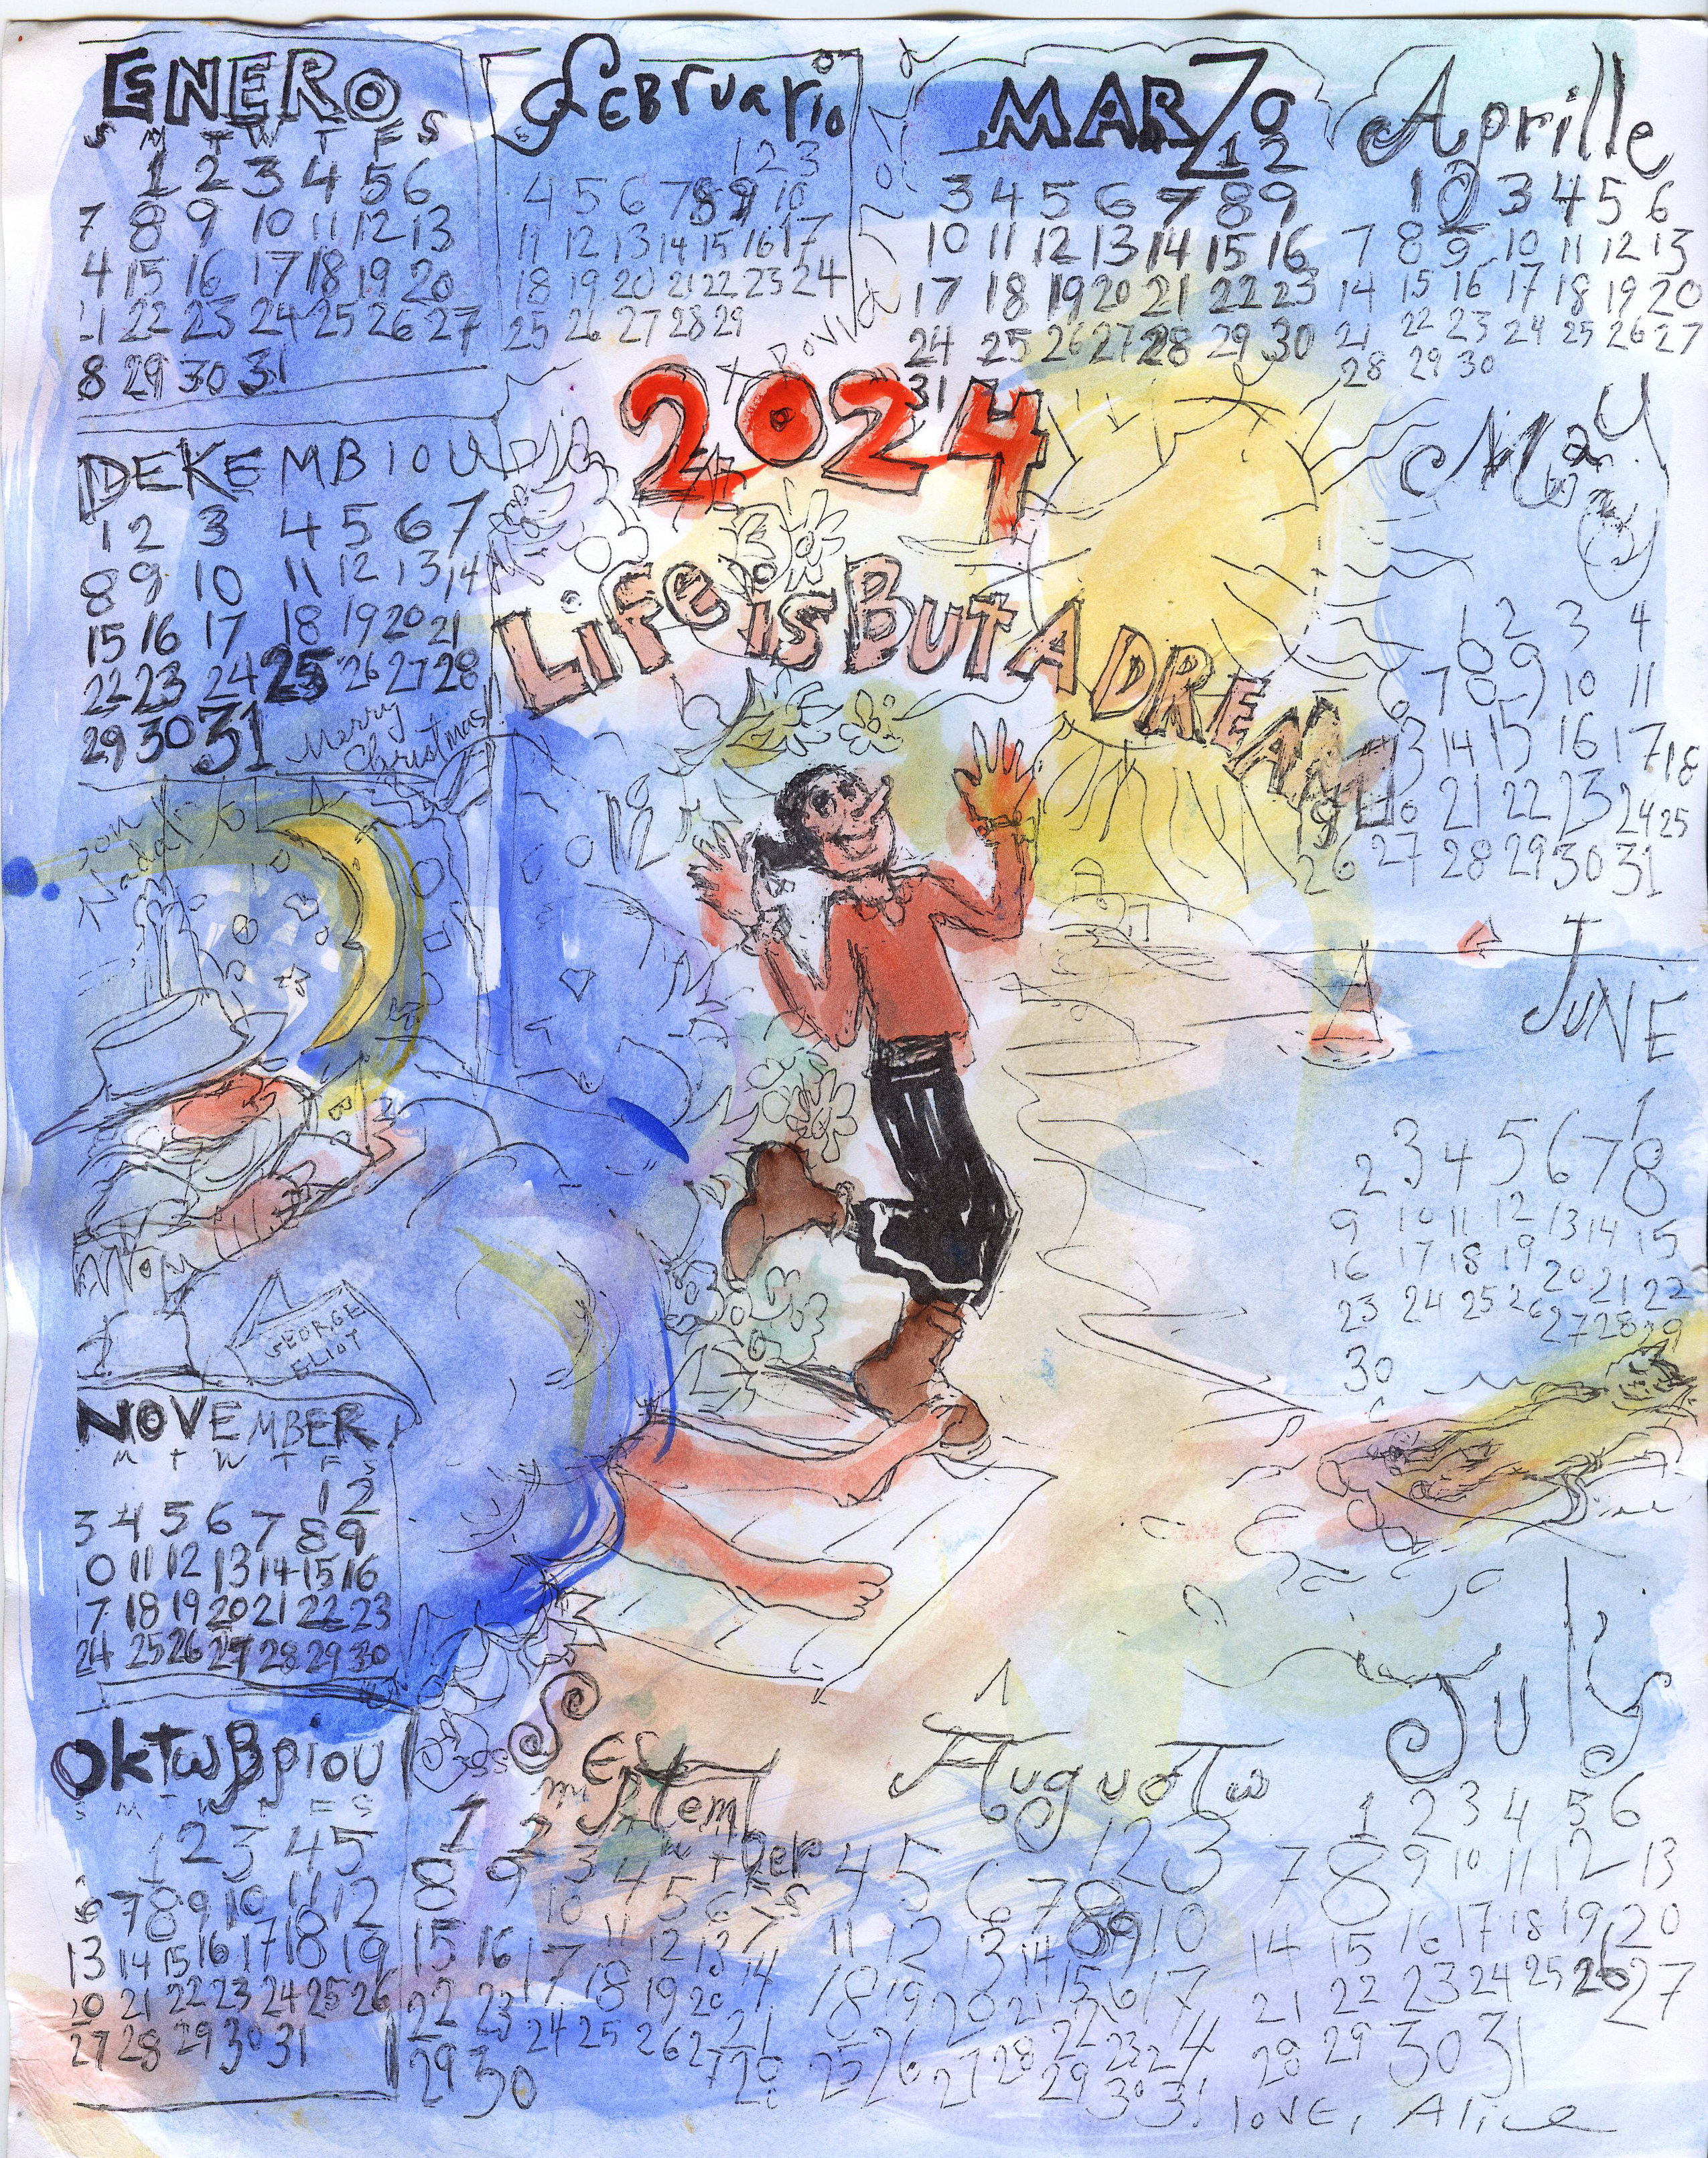 ENERO
S M T W T F S
1 2 3 4 5 6
7 8 9 10 11 12 13
4 15 16 17 18 19 20
1 22 23 24 25 26 27
8 29 30 31
Februario
1 2 3
4 5 6 7 8 9 10
11 12 13 14 15 16 17
18 19 20 21 22 23 24
25 26 27 28 29
MARZO
1 2
3 4 5 6 7 8 9
10 11 12 13 14 15 16
17 18 19 20 21 22 23
24 25 26 27 28 29 30
31
Aprille
1 2 3 4 5 6
7 8 9 10 11 12 13
14 15 16 17 18 19 20
21 22 23 24 25 26 27
28 29 30
2024
Life is But A DREAM
May
1 2 3 4
7 8 9 10 11
13 14 15 16 17 18
19 20 21 22 23 24 25
26 27 28 29 30 31
DEKEMBIOU
1 2 3 4 5 6 7
8 9 10 11 12 13 14
15 16 17 18 19 20 21
22 23 24 25 26 27 28
29 30 31
Merry
Christmas!
JUNE
1
2 3 4 5 6 7 8
9 10 11 12 13 14 15
16 17 18 19 20 21 22
23 24 25 26 27 28 29
30
GEORGE
ELIOT
NOVEMBER
M T W T F S
1 2
3 4 5 6 7 8 9
0 11 12 13 14 15 16
17 18 19 20 21 22 23
24 25 26 27 28 29 30
OkTωβρiou
S M T W T F S
1 2 3 4 5
6 7 8 9 10 11 12
13 14 15 16 17 18 19
20 21 22 23 24 25 26
27 28 29 30 31
September
1 2 3 4 5 6 7
8 9 10 11 12 13 14
15 16 17 18 19 20 21
22 23 24 25 26 27 28
29 30
Auguoτω
1 2 3
4 5 6 7 8 9 10
11 12 13 14 15 16 17
18 19 20 21 22 23 24
25 26 27 28 29 30 31
July
1 2 3 4 5 6
7 8 9 10 11 12 13
14 15 16 17 18 19 20
21 22 23 24 25 26 27
28 29 30 31
love, Alice